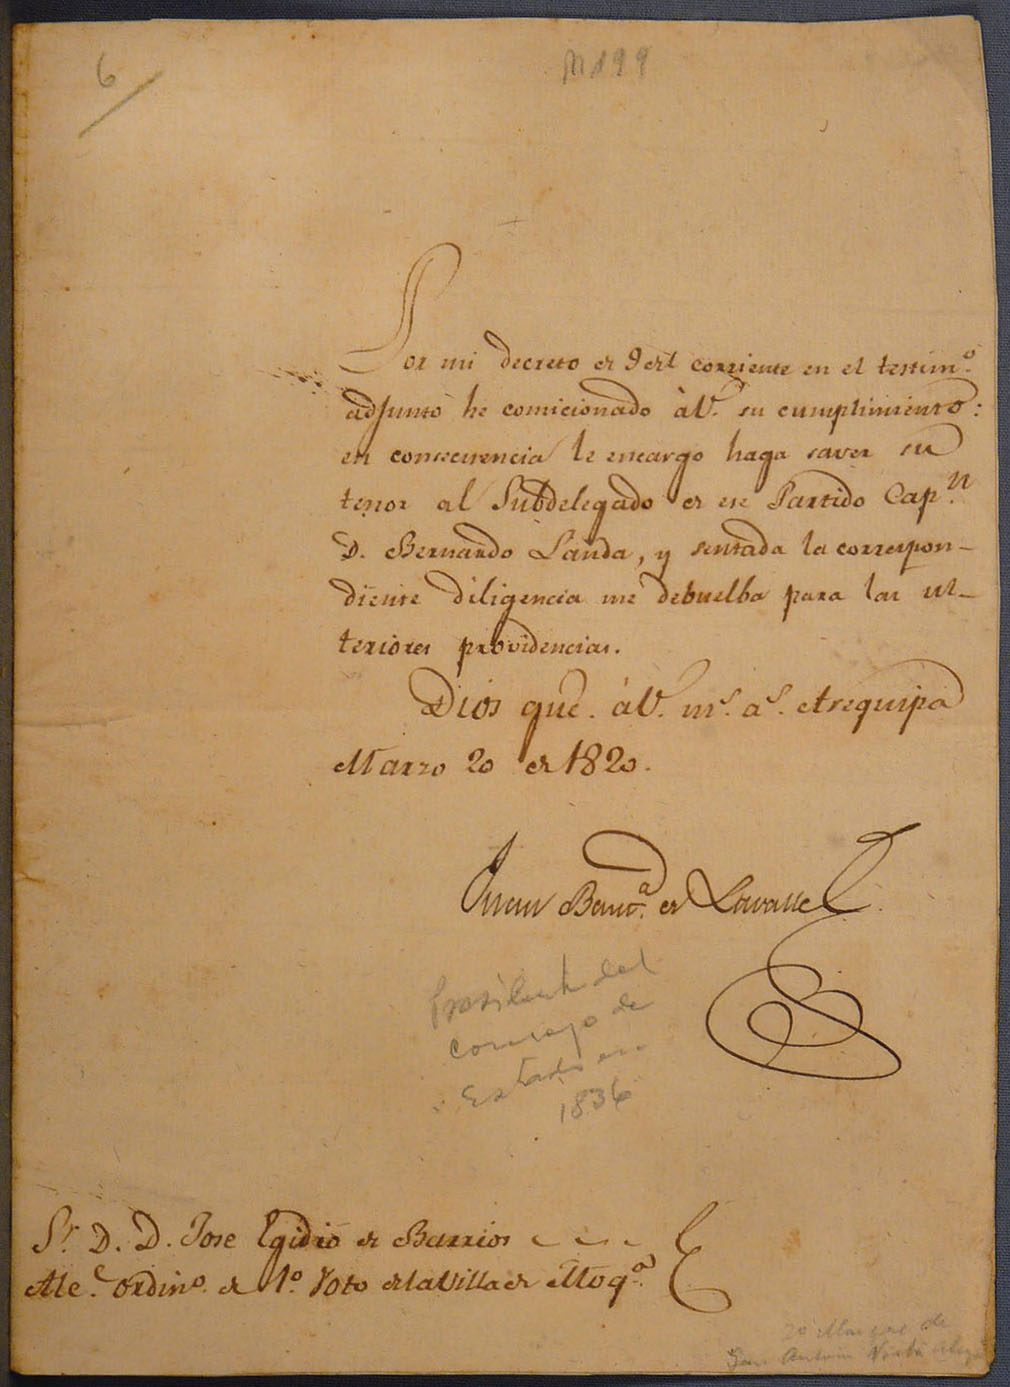 6
N 199
Por mi decreto de 9 del corriente en el testim.º
adjunto he comicionado à V. su cumplimiento:
en consecuencia le encargo haga saver su
tenor al Subdelegado de ese Partido Cap.n
D. Bernardo Landa, y sentada la correspon-
diente diligencia me debuelba para las ul-
teriores providencias.
Dios gue. à V. m.s a.s Arequipa
Marzo 20 de 1820.
Juan Baut.a de Lavalle
Presidente del
consejo de
Estado en
1836
S.r D. D. Jose Egidio de Barrios
Alc.e ordin.º de 1.º Voto de la Villa de Moq.a
2º Marques de
San Antonio